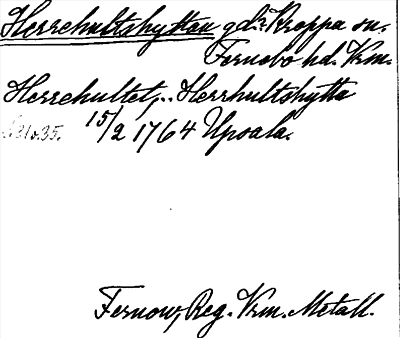 Herrehultshyttan gd? Kroppa sn.
Fernebo hd. Vrm.
Herrehultet,.. Herrhultshytta
s. 31 o. 35. 15/2 1764 Upsala.
Fernow, Reg. Vrm. Metall.